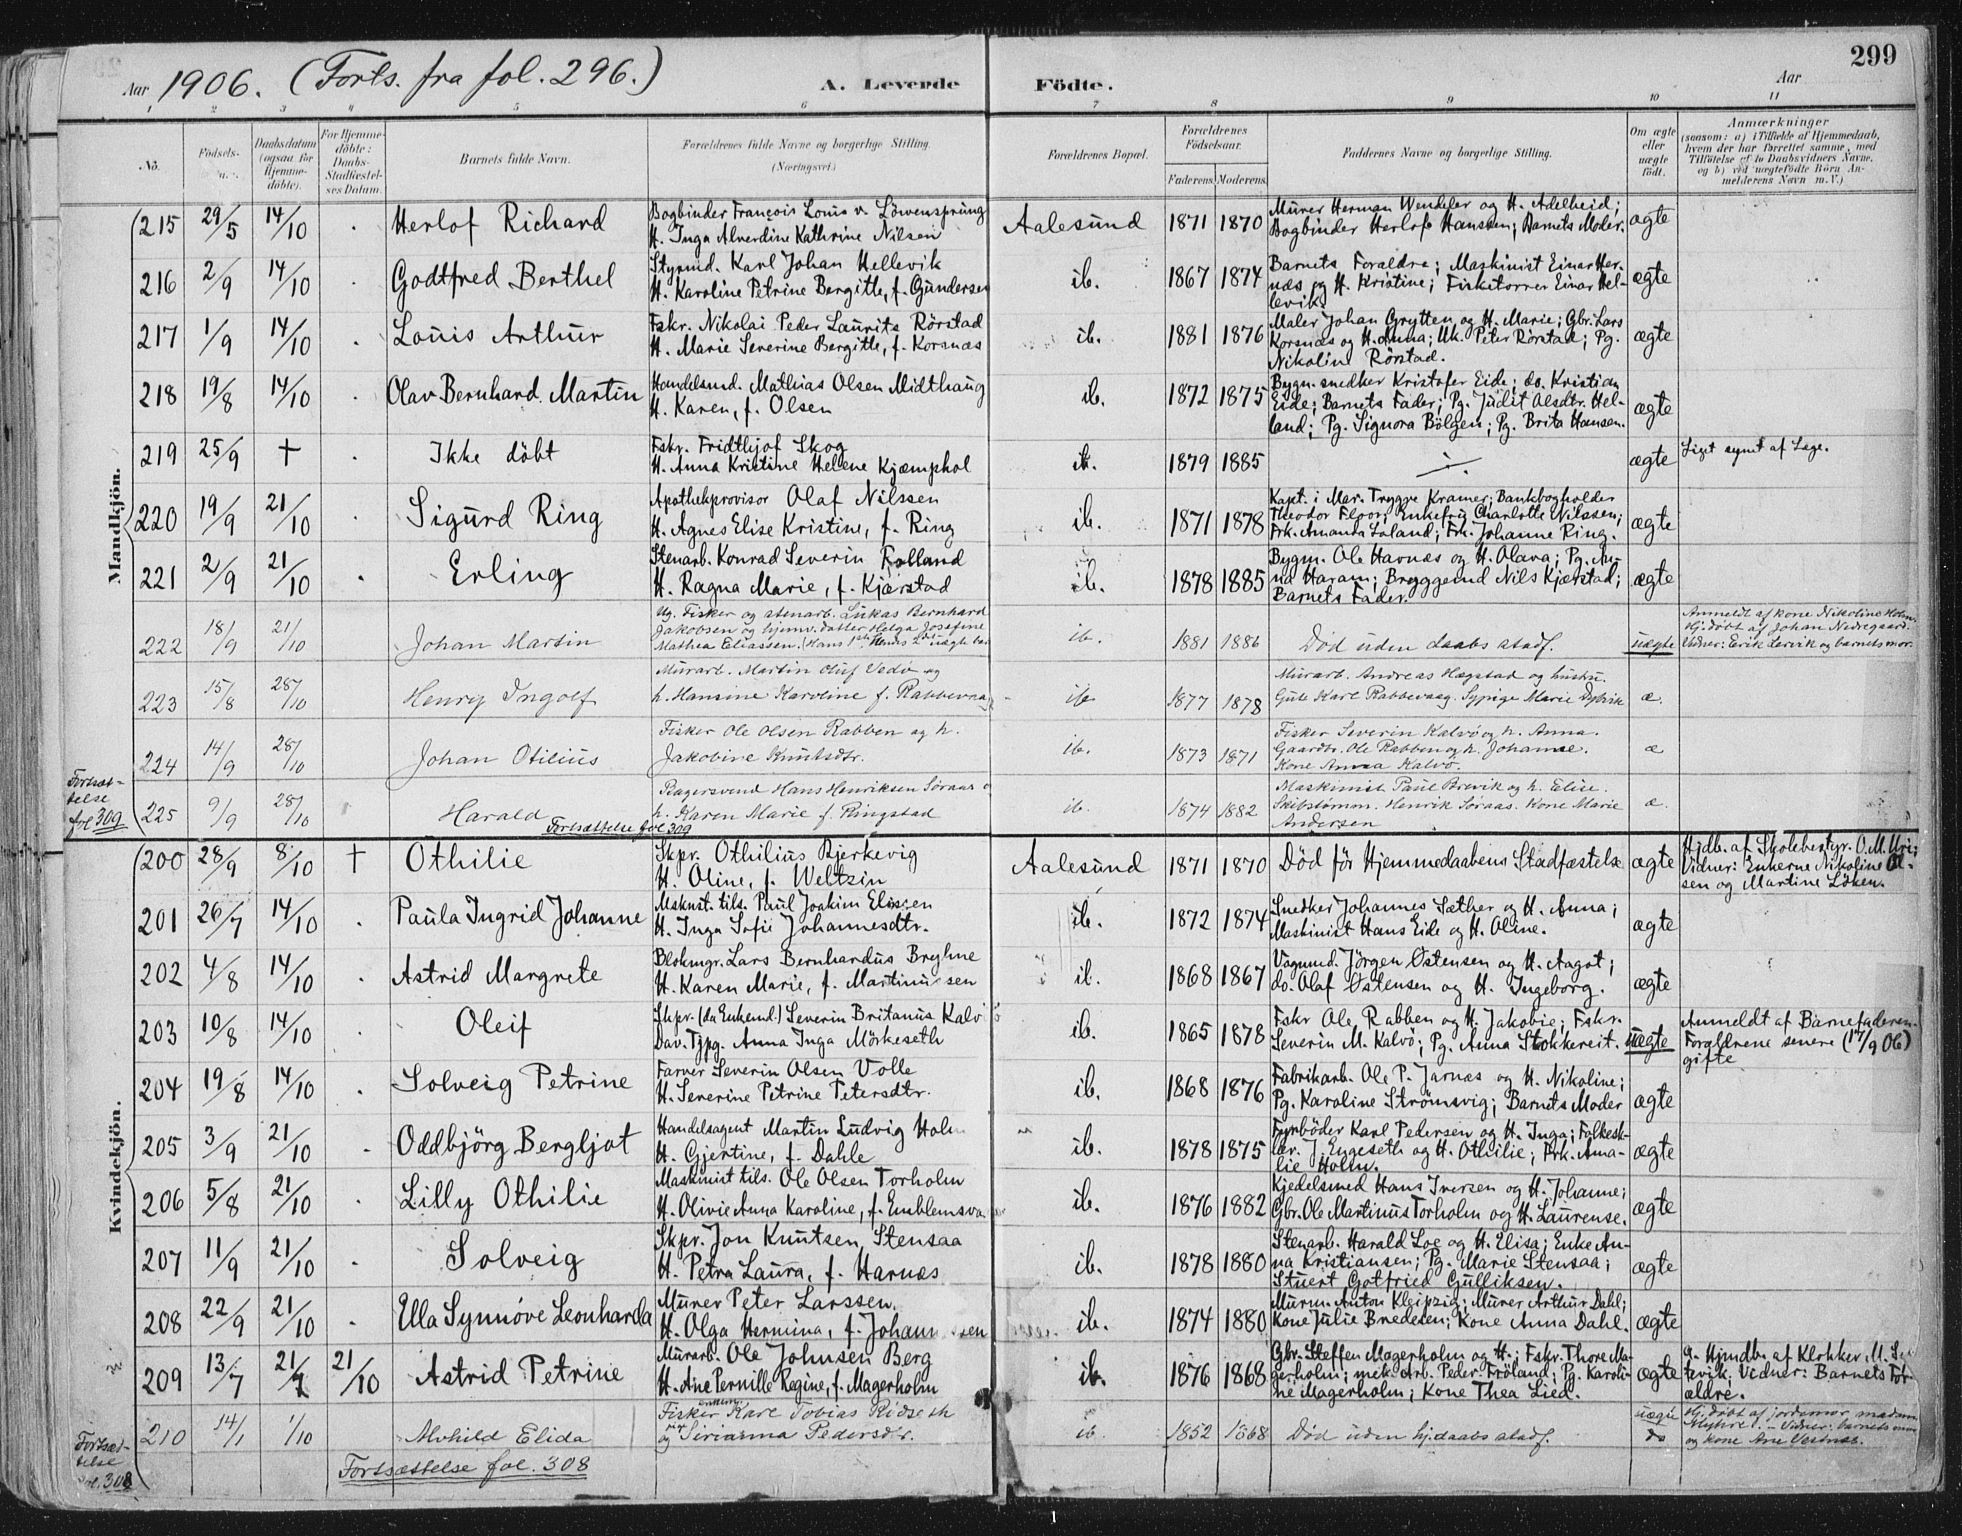 299
Aar 1906. (Forts. fra fol. 296.) A. Levende Födte. Aar
1 2 3 4 5 6 7 8 9 10 11
No.
Födsels-
Daabsdatum (ogsaa for Hjemme-döbte).
For Hjemme-döbte: Daabs-Stadfæstel-ses Datum.
Barnets fulde Navn.
Forældrenes fulde Navne og borgerlige Stilling. (Næringsvei.)
Forældrenes Bopæl.
Forældrenes Födselsaar.
Faderens. Moderens.
Faddernes Navne og borgerlige Stilling.
Om ægte eller uægte födt.
Anmærkninger
(saasom: a) i Tilfælde af Hjemmedaab, hvem der har forrettet samme, med Tilföielse af to Daabsvidners Navne, og b) ved uægtefödte Börn An-melderens Navn m. V.)
Mandkjön.
215 29/5 14/10 . Herlof Richard
Bogbinder François Louis v. Löwensprung
H. Inga Alverdine Kathrine Nilsen
Aalesund 1871 1870
Murer Herman Wendeler og H. Adelheid;
Bogbinder Herlof Hanssen; Barnets Moder.
ægte
216 2/9 14/10 . Godtfred Berthel
Styrmd. Karl Johan Hellevik
H. Karoline Petrine Bergitte, f. Gundersen
ib. 1867 1874
Barnets Forældre; Maskinist Einar Her-
næs og H. Kristine; Fisketorrer Einar Hel-
levik
ægte
217 1/9 14/10 . Louis Arthur
Fskr. Nikolai Peder Laurits Rörstad
H. Marie Severine Bergitte, f. Korsnæs
ib. 1881 1876
Maler Johan Grytten og H. Marie; Gbr. Lars
Korsnæs og H. Anna; Uk. Peter Rörstad; Pg.
Nikoline Rörstad.
ægte
218 19/8 14/10 . Olav Bernhard Martin
Handelsmd. Mathias Olsen Midthaug
H. Karen, f. Olsen
ib. 1872 1875
Bygn. snedker Kristofer Eide; do. Kristian
Eide; Barnets Fader; Pg. Judit Olsdtr. Hel-
land; Pg. Signora Bölgen; Pg. Brita Hansen.
ægte
219 25/9 + . Ikke döbt
Fskr. Fridthjof Skog
H. Anna Kristine Helene Kjæmphol
ib. 1879 1885
ægte
Liget synet af Læge.
220 19/9 21/10 . Sigurd Ring
Apothekprovisor Olaf Nilssen
H. Agnes Elise Kristine, f. Ring
ib. 1871 1878
Kapt. i Mar. Trygve Kramer; Bankbogholder
Theodor Floor; Enkefru Charlotte Nilssen;
Frk. Amanda Loland; Frk. Johanne Ring.
ægte
221 2/9 21/10 . Erling
Stenarb. Konrad Severin Folland
H. Ragna Marie, f. Kjærstad
ib. 1878 1885
Bygm. Ole Havnæs og H. Olava; Pg. An-
na Haram; Bryggemd Nils Kjærstad;
Barnets Fader.
ægte
222 18/9 21/10 Johan Martin
Ug. Fisker og stenarb. Lukas Bernhard
Jakobsen og hjemv. datter Helga Josefine
Mathea Eliassen. (Hans 1ste, Hendes 2det uægte barn
ib. 1881 1886
Död uden daabs stadf.
uægte
Anmeldt af kone Nikoline Holm.
Hj. döbt af Johan Nedregaard.
Vidner: Erik Lervik og barnets mor.
223 15/8 28/10 Henry Ingolf
Murarb. Martin Oluf Vedö og
h. Hansine Karoline f. Rabbevaag
ib 1877 1878
Murarb. Andreas Hægstad og hustru.
Gut Karl Rabbevaag. Sypige Marie Dybvik
æ.
224 14/9 28/10 Johan Otilius
Fisker Ole Olsen Rabben og h.
Jakobine Knutsdtr.
ib. 1873 1871
Fisker Severin Kalvö og h. Anna.
Gaardbr. Ole Rabben og h. Johanne.
Kone Anna Kalvö.
æ
Fortsæt-
telse
fol 309
225 9/9 28/10 Harald
Bagersvend Hans Henriksen Söraas o
h. Karen Marie f. Ringstad
Fortsættelse fol 309
ib. 1874 1882
Maskinist Paul Brevik og h. Elise.
Skibstömm. Henrik Söraas. Kone Marie
Andersen
æ.
Kvindekjön.
200 28/9 8/10 + Othilie
Skpr. Othilius Bjerkevig
H. Oline, f. Weltzin
Aalesund 1871 1870
Död för Hjemmedaabens Stadfæstelse
ægte
Hjdb. af Skolebestyr. O. M. Uri;
Vidner: Enkerne Nikoline Ol-
sen og Martine Löken.
201 26/7 14/10 . Paula Ingrid Johanne
Mskust. tils. Paul Joakim Elissen
H. Inga Sofie Johannesdtr.
ib. 1872 1874
Snedker Johannes Sæther og H. Anna;
Maskinist Hans Eide og H. Oline.
ægte
202 4/8 14/10 . Astrid Margrete
Blokmgr. Lars Bernhardus Bryhne
H. Karen Marie, f. Martinussen
ib. 1868 1867
Vognmd. Jörgen Østensen og H. Aagot;
do. Olaf Østensen og H. Ingeborg.
ægte
203 10/8 14/10 . Oleif
Skpr. (da Enkemd.) Severin Britanus Kalvö
Dav. Tjpg. Anna Inga Mörkeseth
ib. 1865 1878
Fskr Ole Rabben og H. Jakobie; Fskr.
Severin M. Kalvö; Pg. Anna Stokkereit.
uægte
Anmeldt af Barnefaderen.
Forældrene senere (17/9 06)
gifte
204 19/8 14/10 . Solveig Petrine
Farver Severin Olsen Volle
H. Severine Petrine Petersdtr.
ib. 1868 1876
Fabrikarb. Ole P. Jarnæs og H. Nikoline;
Pg. Karoline Strömsvig; Barnets Moder
ægte
205 3/9 21/10 . Oddbjörg Bergljot
Handelsagent Martin Ludvig Holm
H. Gjertine, f. Dahle
ib. 1878 1875
Fyrböder Karl Pedersen og H. Inga; Folkesk-
lær. J. Engeseth og H. Othilie; Frk. Ama-
lie Holm.
ægte
206 5/8 21/10 . Lilly Othilie
Maskinist tils. Ole Olsen Torholm
H. Olivie Anna Karoline, f. Emblemsvaag
ib. 1876 1882
Kjedelsmed Hans Iversen og H. Johanne;
Gbr. Ole Martinus Torholm og H. Laurense.
ægte
207 11/9 21/10 . Solveig
Skpr. Jon Knutsen Stensaa
H. Petra Laura, f. Harnæs
ib. 1878 1880
Stenarb. Harald Loe og H. Elisa; Enke An-
na Kristiansen; Pg. Marie Stensaa;
Stuert Gotfried Gulliksen.
ægte
208 22/9 21/10 . Ella Synnöve Leonharda
Murer Peter Larssen.
H. Olga Hermina, f. Johannessen
ib. 1874 1880
Murm. Anton Kleipzig; Murer Arthur Dahl;
Kone Julie Bredesen; Kone Anna Dahl.
ægte
209 13/7 21/7 21/10 Astrid Petrine
Murarb. Ole Johnsen Berg
H. Ane Pernille Regine, f. Magerholm
ib. 1876 1868
Gbr. Steffen Magerholm og H.; Fskr. Thore Ma-
gerholm; mek. Arb. Peder Fröland; Pg. Karoli-
ne Magerholm; Kone Thea Lied.
ægte
Hjmdb. af Klokker M.
Vidner: Barnets For-
ældre.
Fortsæt-
telse
fol. 308
210 14/1 1/10 Alvhild Elida
Fisker enkem. Karl Tobias Ridseth
og pige Sirianna Pedersdr.
ib 1852 1868
Död uden hj.daabs stadf.
uægte
do
Hj. döbt af jordemor madam
Myhre. - Vidner: barnets mor
og kone Ane Vestnæs.
Fortsættelse fol. 308